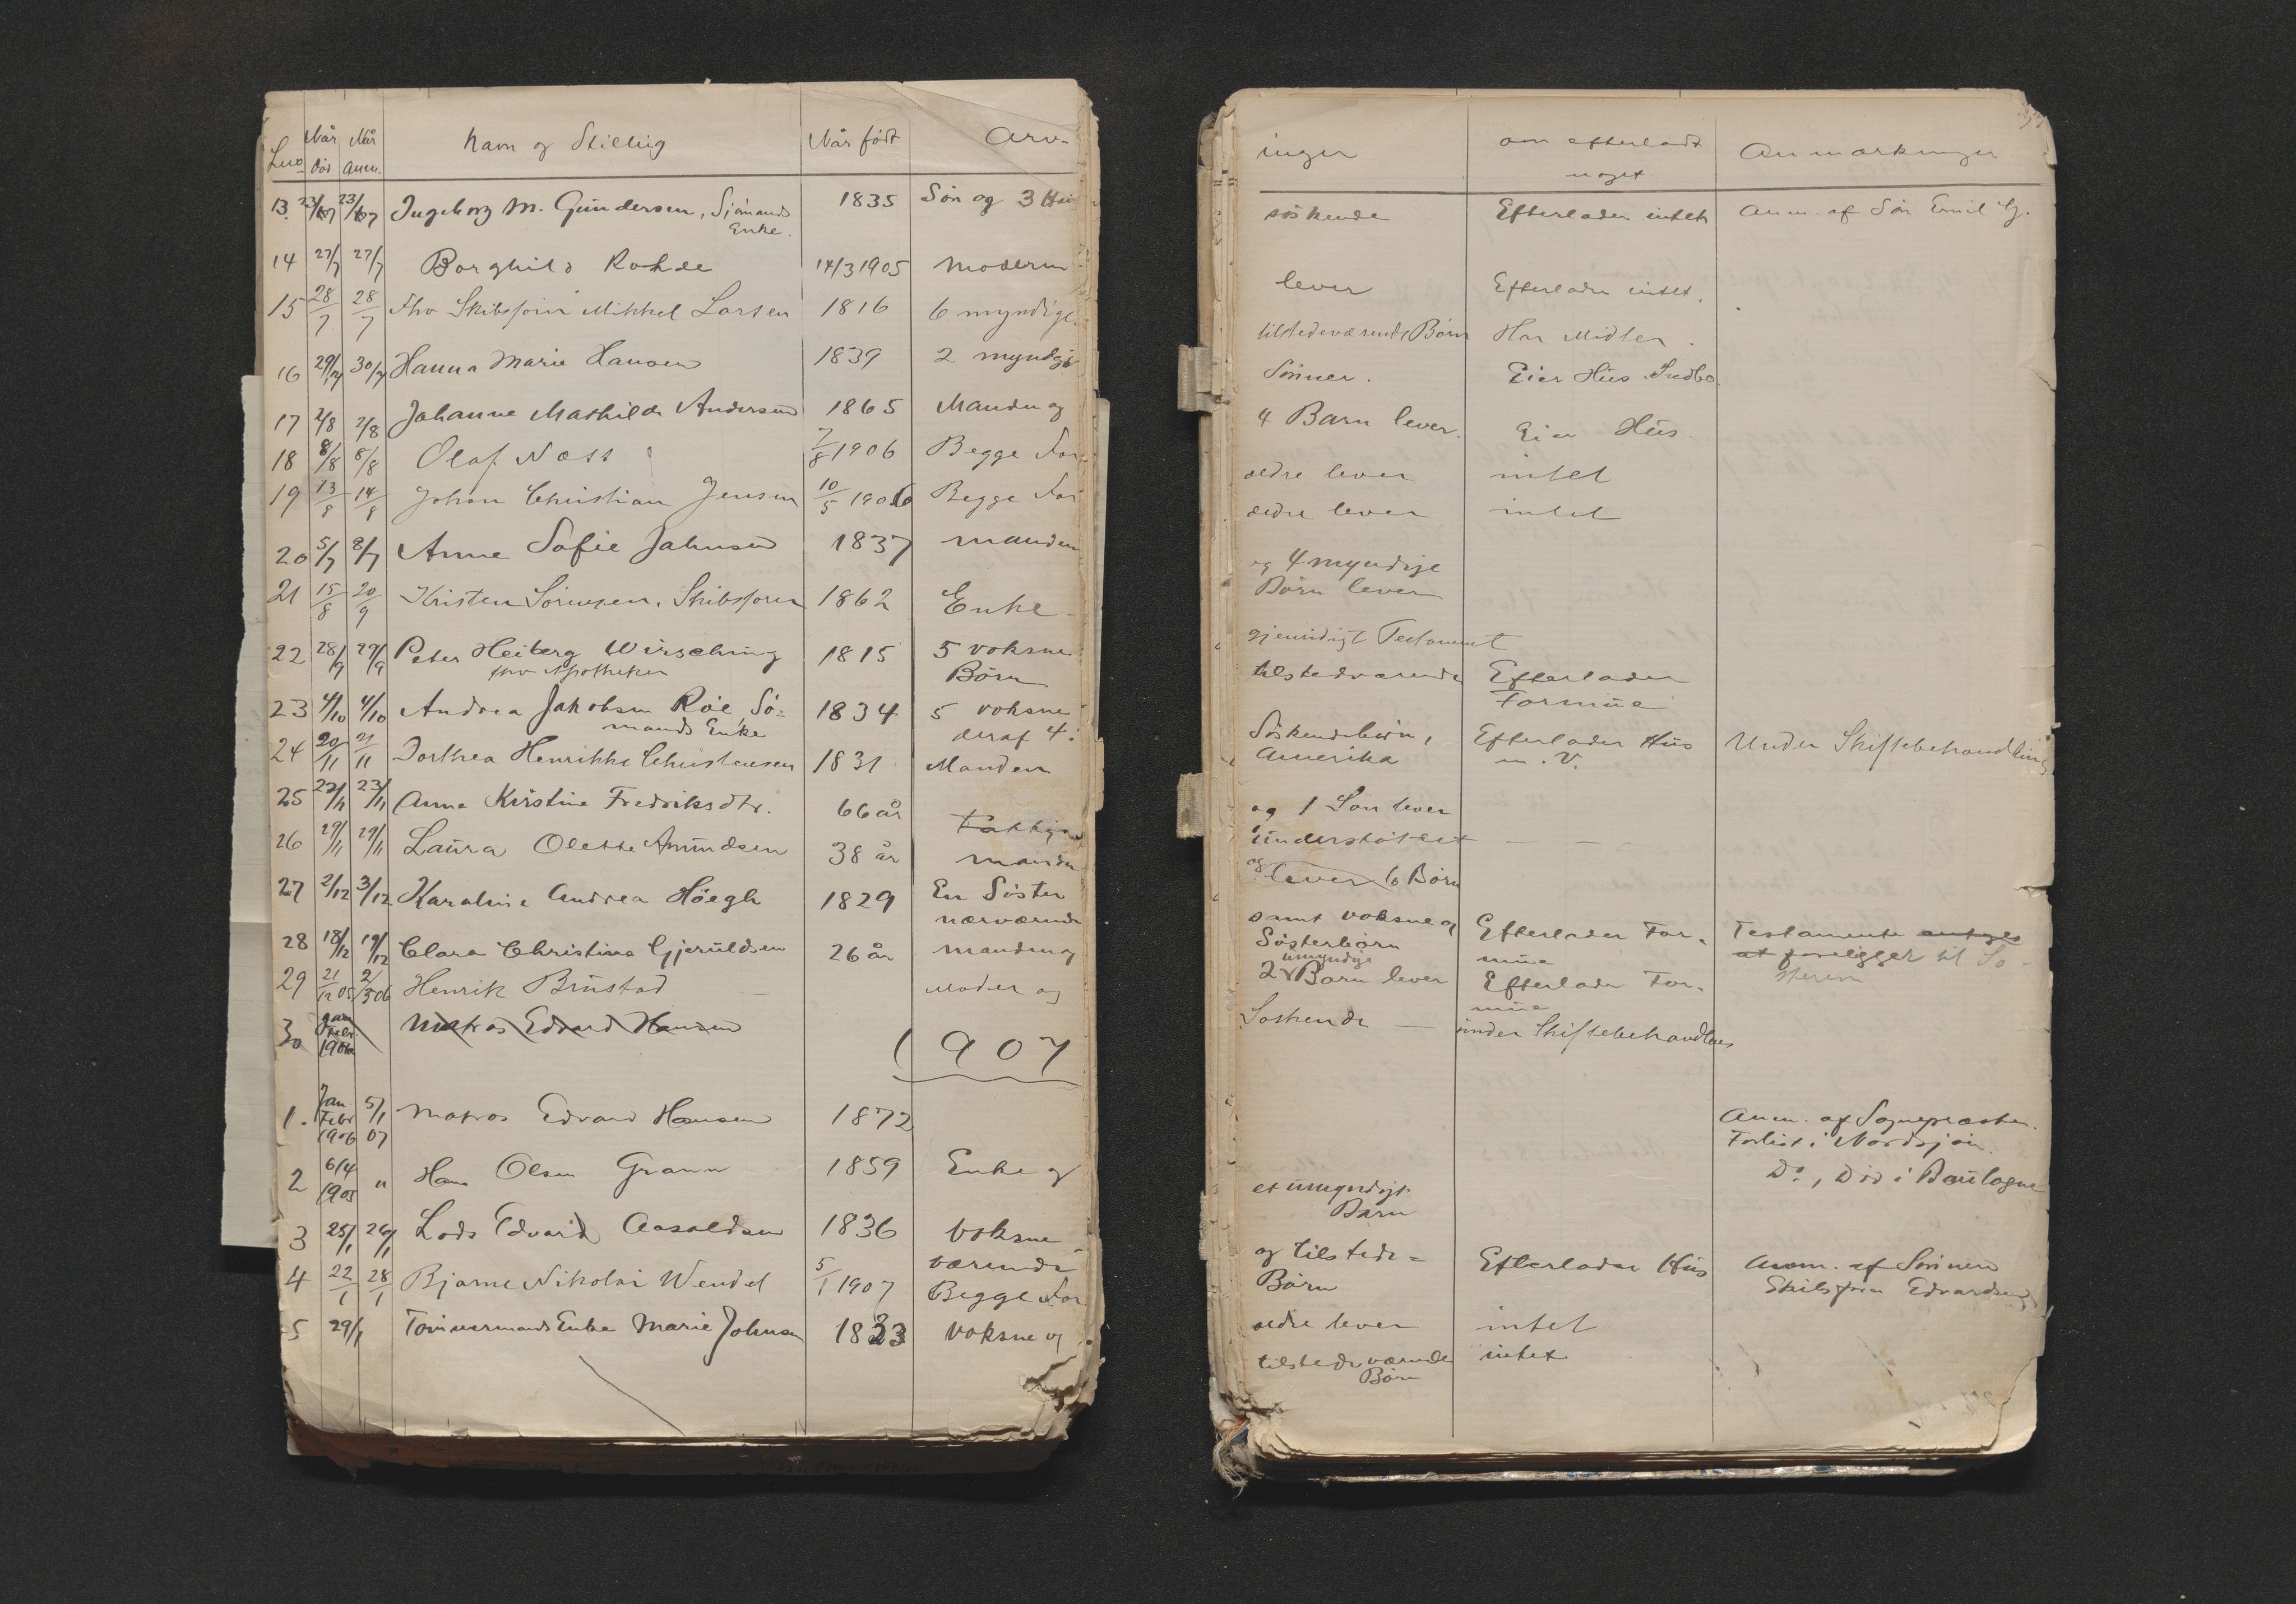 Lno
Når
död
Når
Anm.
Navn og Stilling
Når född
Arv-
13. 23/7 23/7 Ingeborg M. Gundersen, Sjömands 1835 Sön og 3
Enke.
14 27/7 27/7 Borghild Rohde 14/3 1905 Moderen
15 28/7 28/7 Fhv Skibsförer Mikkel Larsen 1816 6 myndige
16 29/7 30/7 Hanna Marie Hansen 1839 2 myndige
17 2/8 2/8 Johanne Mathilde Andersen 1865 Manden og
18 8/8 8/8 Olaf Næss 7/8 1906 Begge For
19 13/8 14/8 Johan Christian Jensen 10/5 1906 Begge For
20 5/7 8/7 Anne Sofie Johnsen 1837 manden
21 15/8 20/9 Kristen Sörensen, Skibsförer 1862 Enke -
22 28/9 29/9 Peter Heiberg Wirsching 1815 5 voksne
fhv Apotheker Börn
23 4/10 4/10 Andrea Jakobsen Röe, Sö= 1834 5 voksne
mands Enke deraf 4 i
24 20/11 21/11 Dorthea Henrikke Christensen 1831 Manden
25 22/11 23/11 Anne Kirstine Fredriksdtr. 66 år Fattig
26 29/11 29/11 Laura Olette Amundsen 38 år manden
27 2/12 3/12 Karoline Andrea Höegh 1829 En Söster
nærværende
28 18/12 19/12 Clara Christine Gjeruldsen 26 år manden og
29 21/12 05 2/3 06 Henrik Brustad - Moder og
30 Jan Febr 1906 Matros Edvard Hansen
1907
1. Jan Febr 1906 5/1 07 Matros Edvard Hansen 1872
2 6/4 1905 " Hans Olsen Grann 1859 Enke og
3 25/1 26/1 Lods Edvard Aasoldsen 1836 voksne
værende
4 22/1 28/1 Bjarne Nikolai Wendel 5/1 1907 Begge For
5 29/1 Tömmermands Enke Marie Johnsen 1833 voksne og
inger
om efterladt
noget
Anmærkninger
söskende Efterlader intet Anm. af Sön Emil G.
lever Efterlader intet.
tilstedeværende Börn Har Midler.
Sönner. Eier Hus Indbo.
4 Barn lever. Eier Hus.
ældre lever intet
ældre lever intet
og 4 myndige
Börn lever
gjensidigt Testament
tilstedeværende Efterlader
Formue
Söskendebörn, Efterlader Hus Under Skiftebehandling
Amerika m. V.
og 1 Sön lever
understöttet - - -
og lever 6 Börn
samt voksne Efterlader For- Testamente
Sösterbörn mue at foreligger til Sö-
steren
umyndige
2 Barn lever Efterlader For-
mue
Söskende - under Skiftebehandling
Anm. af Sognepresten.
Forlist i Nordsjöen.
et umyndigt Do, Död i Boulogne
Barn
og tilstede= Efterlader Hus Anm. af Sönnen
Börn Skibsförer Edvardsen
ældre lever intet
tilstedeværende intet
Börn